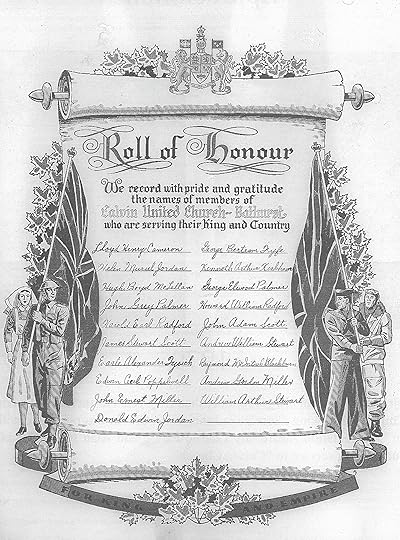 Roll of Honour
We record with pride and gratitude
the names of members of
Calvin United Church - Bathurst
who are serving their King and Country
Lloyd Henry Cameron
George Bertram
Helen Muriel Jordan
Kenneth Arthur
Hugh Boyd McLellan
George Elwood Palmer
John Grey Palmer
Howard William Radford
Harold Earl Radford
John Adam Scott
James Stewart Scott
Andrew William Stewart
Earle Alexander
Raymond McIntosh Washburn
Edwin Cecil Poppelwell
Andrew Gordon Miller
John Ernest Miller
William Arthur Stewart
Donald Edwin Jordan
FOR KING AND EMPIRE